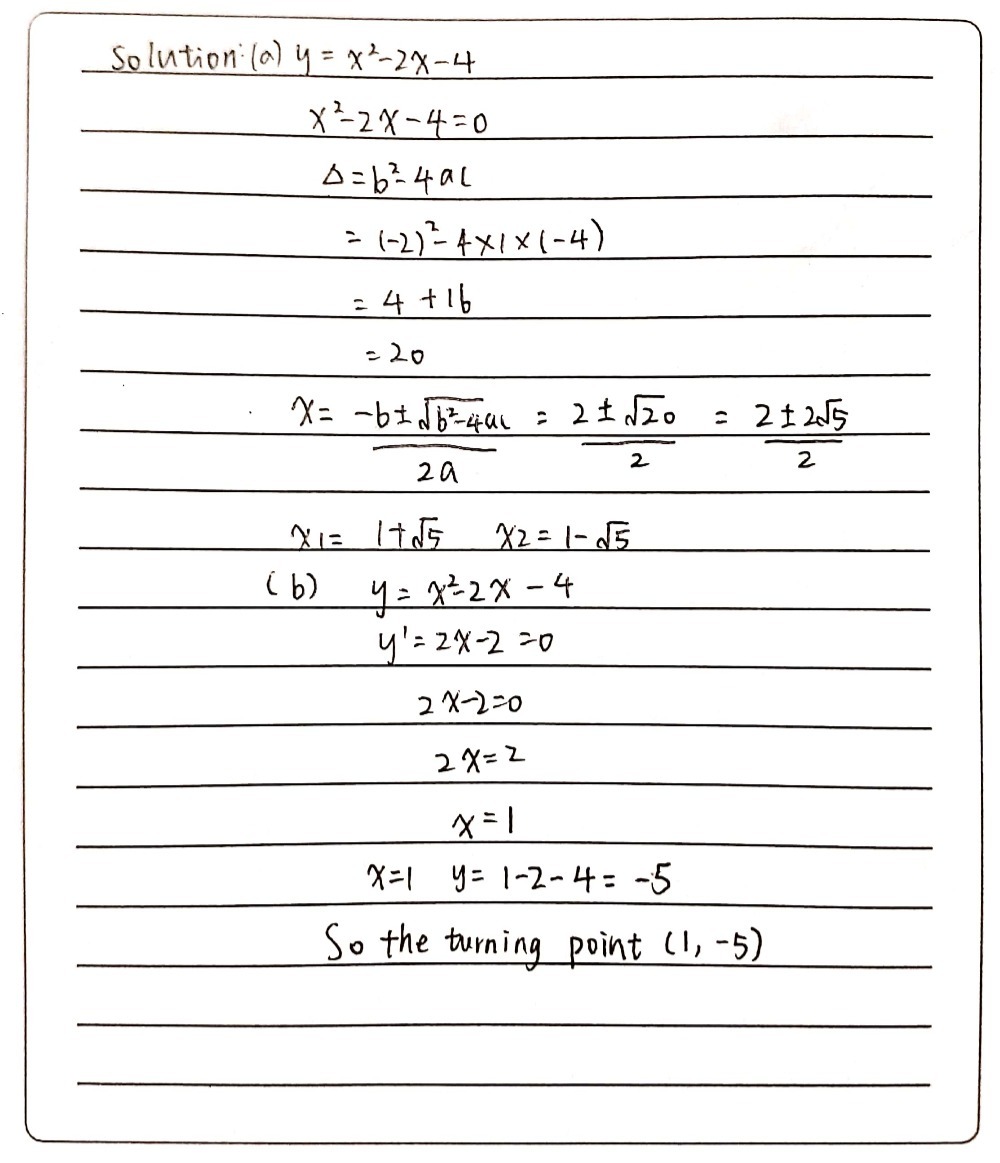 Solution: (a) y = x²-2x-4
x²-2x-4=0
Δ=b²-4ac
= (-2)²-4×1×(-4)
= 4 +16
= 20
x= -b±√b²-4ac / 2a = 2±√20 / 2 = 2±2√5 / 2
x1= 1+√5 x2= 1-√5
(b) y= x²-2x-4
y'= 2x-2=0
2x-2=0
2x=2
x=1
x=1 y= 1-2-4= -5
So the turning point (1, -5)